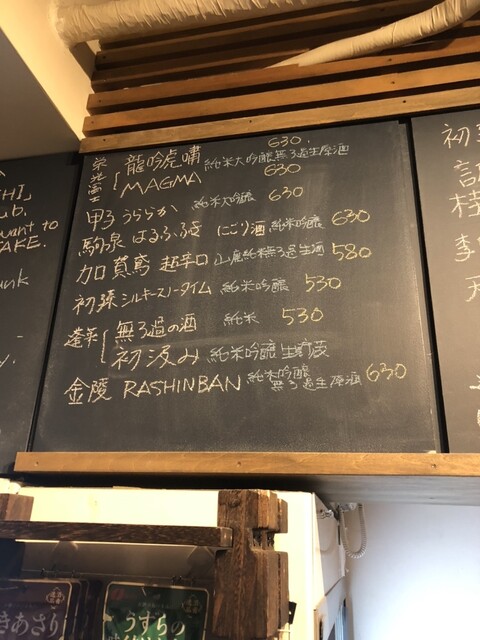 栄光冨士
龍吟虎嘯 純米大吟醸無ろ過生原酒 630.
MAGMA 630
甲子 うららか 純米大吟醸 630
駒泉 はるふぶき にごり酒 純米吟醸 630
加賀鳶 超辛口 山廃純米無ろ過生酒 580
初孫 シルキースノータイム 純米吟醸 530
蓬莱
無ろ過の酒 純米 530
初汲み 純米吟醸 生貯蔵
金陵 RASHINBAN 純米吟醸 無ろ過生原酒 630
HI」
ub.
want to
AKE.
unk
y.
初
桂
李
天
きあさり
うずらの